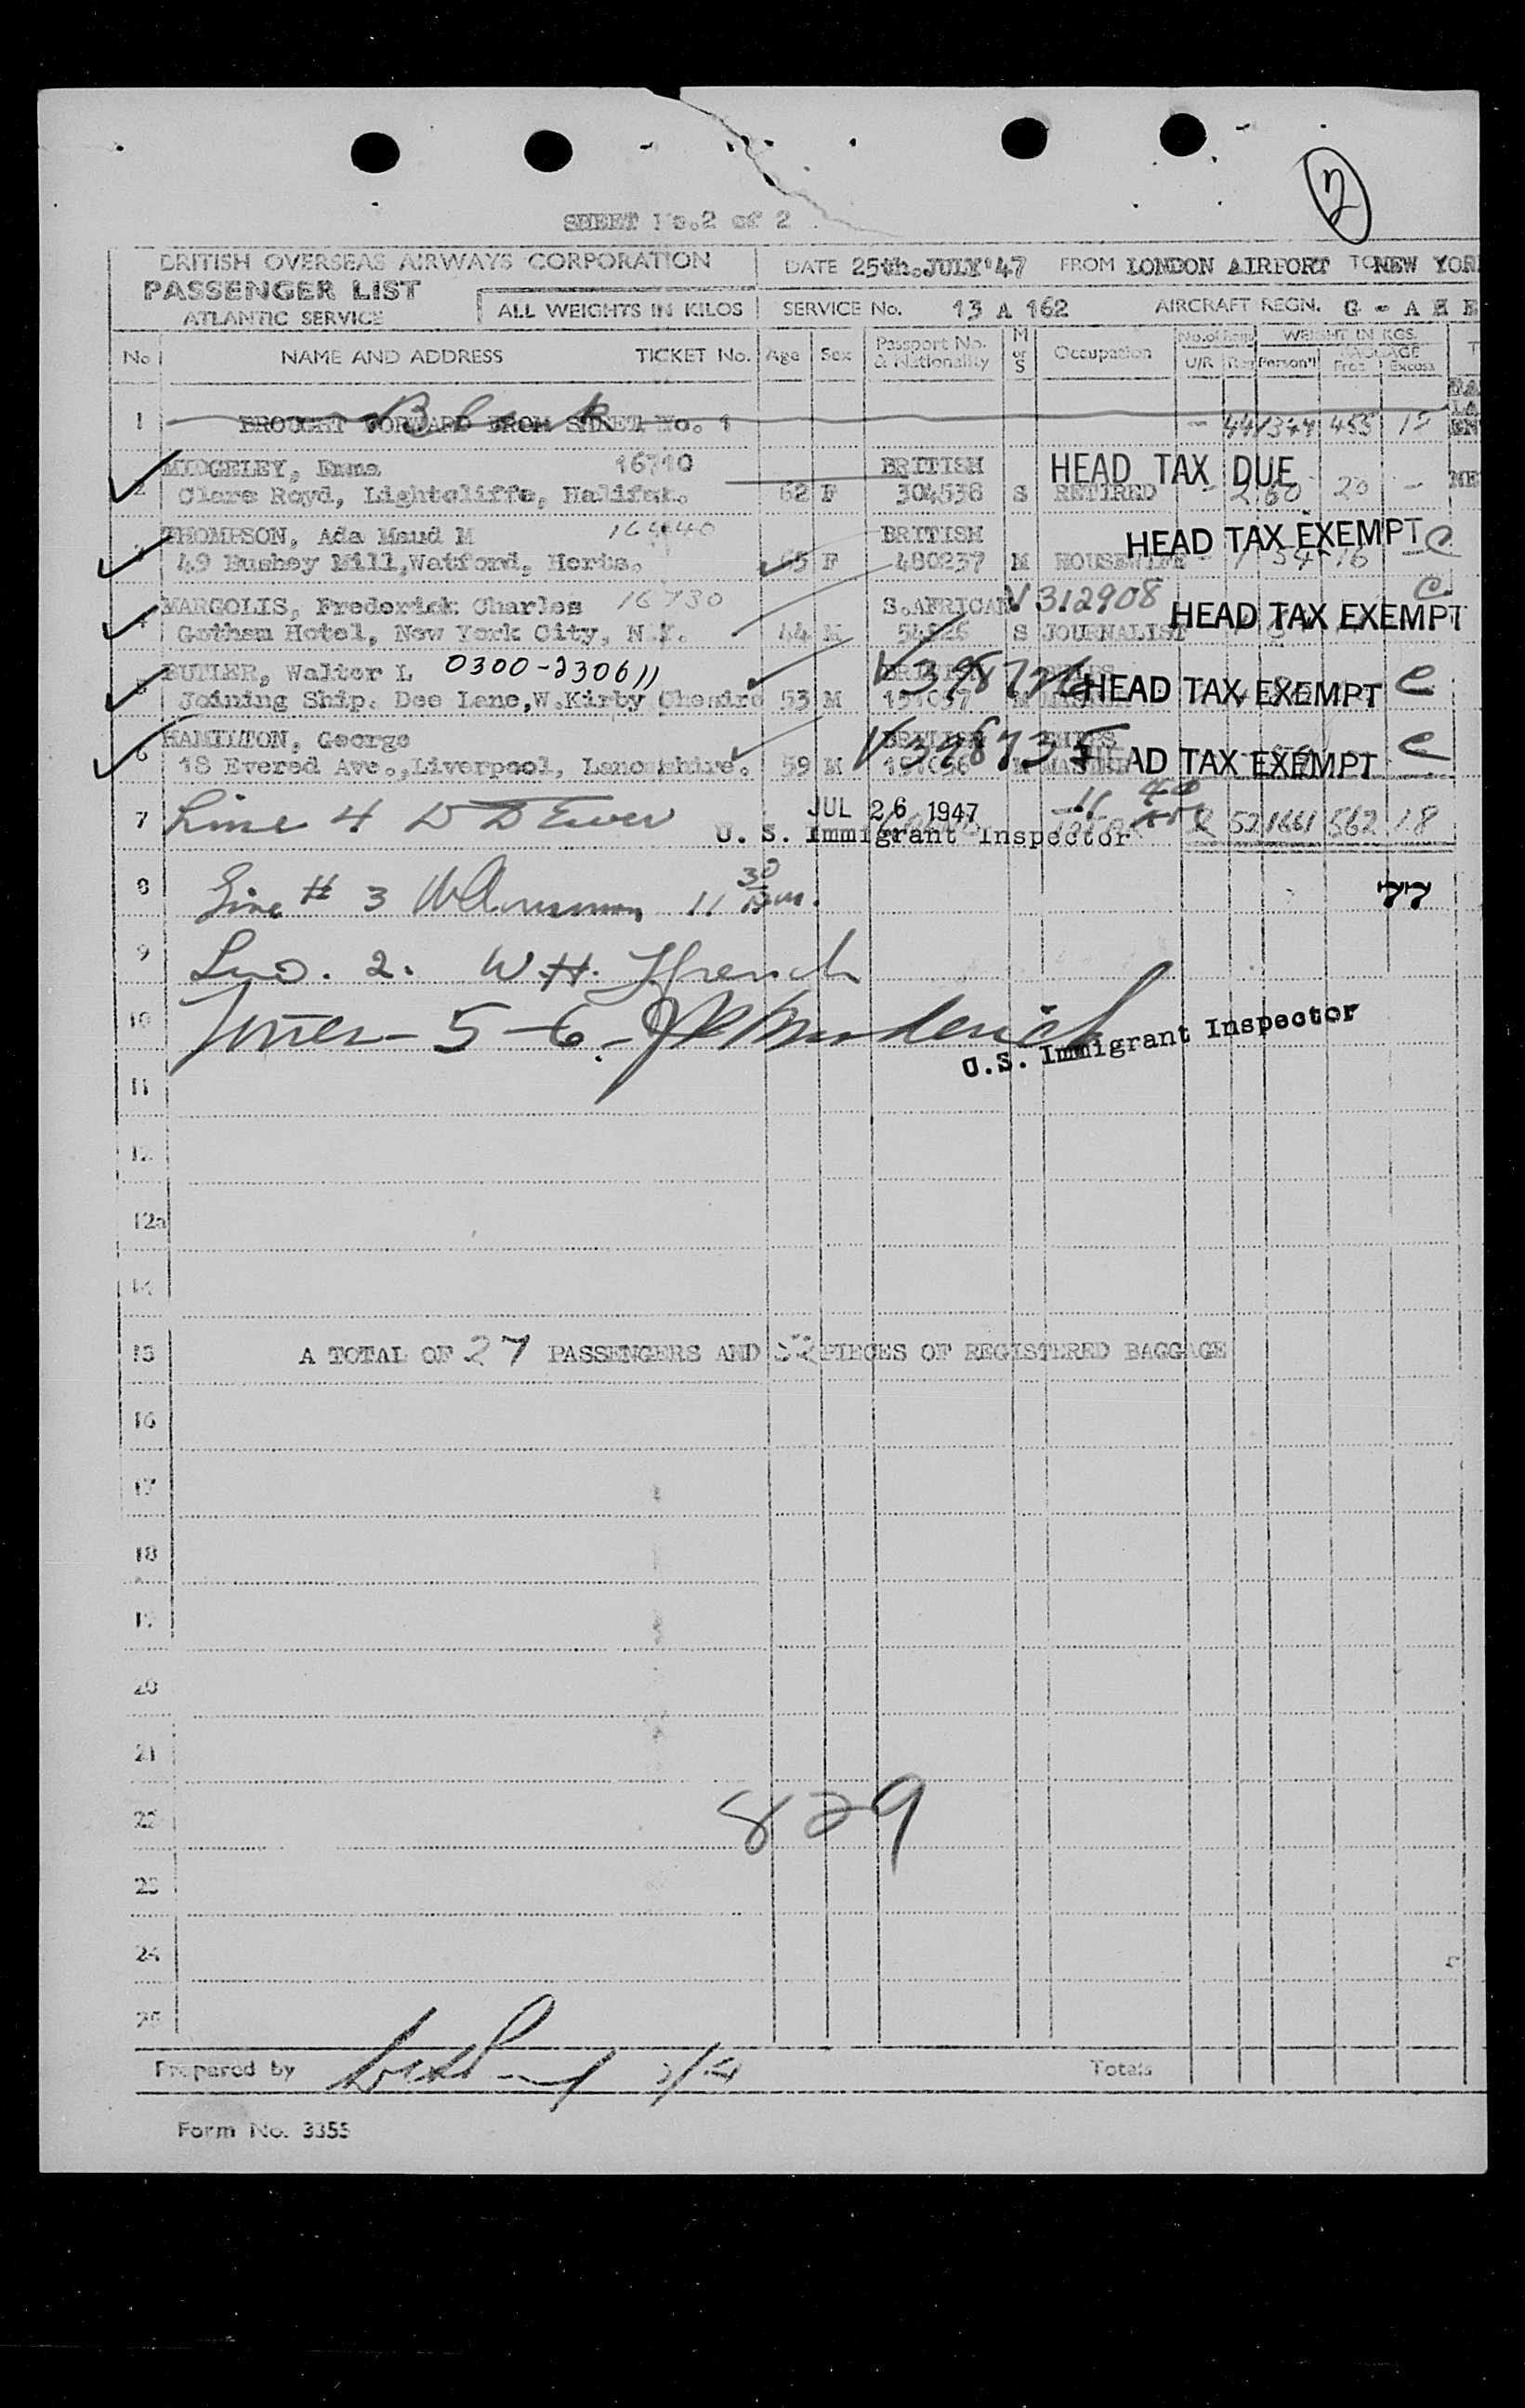 2
SHEET No.2 of 2
BRITISH OVERSEAS AIRWAYS CORPORATION
PASSENGER LIST
ATLANTIC SERVICE
ALL WEIGHTS IN KILOS
DATE 25th.JULY'47 FROM LONDON AIRPORT TO NEW YOR
SERVICE No. 13 A 162 AIRCRAFT REGN. G - A H E
No NAME AND ADDRESS TICKET No. Age Sex Passport No. & Nationality M or S Occupation No. of Bags U/R Reg WEIGHT IN KGS. Person'l BAGGAGE Free Excess
1 BROUGHT FORWARD FROM SHEET No. 1 - 44 1344 455 12
MIDGELEY, Emma 16710 BRITISH HEAD TAX DUE
2 Clare Royd, Lightcliffe, Halifax. 62 F 304538 S RETIRED - 2 60 20 -
THOMPSON, Ada Maud M 16440 BRITISH HEAD TAX EXEMPT C
3 49 Bushey Mill, Watford, Herts. 65 F 480237 M HOUSEWIFE 1 54 16 -
MARGOLIS, Frederick Charles 16730 S.AFRICAN V312908 C.
4 Gotham Hotel, New York City, N.Y. 44 M 54826 S JOURNALIST HEAD TAX EXEMPT
BUTLER, Walter L 0300-230611 BRITISH V398726 SHIPS
5 Joining Ship. Dee Lane, W.Kirby Cheshire 53 M 151057 M HEAD TAX EXEMPT C
HAMILTON, George BRITISH V398735 SHIPS
6 18 Evered Ave., Liverpool, Lancashire. 59 M 151056 M MASTER HEAD TAX EXEMPT C
7 Line 4 JUL 26 1947 2 52 1661 562 18
U. S. Immigrant Inspector
8 Line # 3 11 30 77
9 2. W.H. French
10 5-6.
U.S. Immigrant Inspector
11
12
12a
14
15 A TOTAL OF 27 PASSENGERS AND 52 PIECES OF REGISTERED BAGGAGE
16
17
18
19
20
21
829
22
23
24
25
Prepared by Totals
Form No. 3355